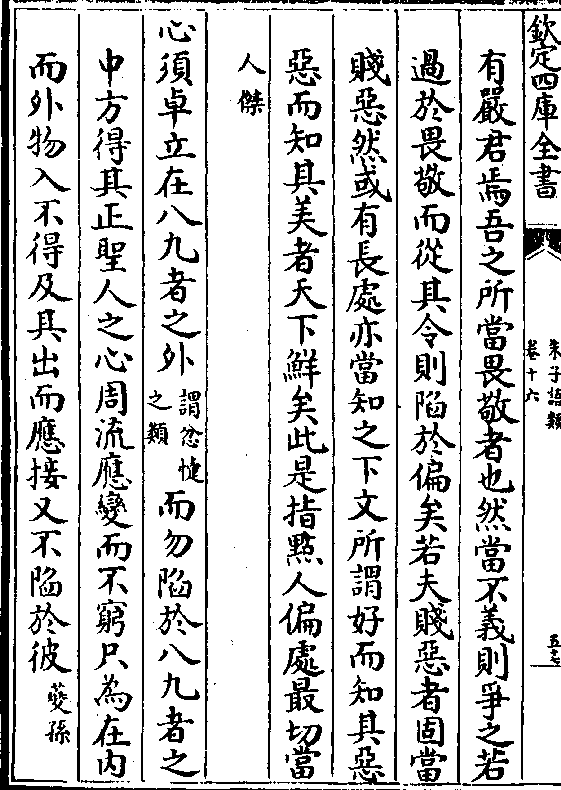 欽定四庫全書
朱子語類
卷十六
五七
有嚴君焉吾之所當畏敬者也然當不義則爭之若
過於畏敬而從其令則陷於偏矣若夫賤惡者固當
賤惡然或有長處亦當知之下文所謂好而知其惡
惡而知其美者天下鮮矣此是指㸃人偏處最切當
人傑
心須卓立在八九者之外謂忿懥之類而勿陷於八九者之
中方得其正聖人之心周流應變而不窮只為在內
而外物入不得及其出而應接又不陷於彼夔孫